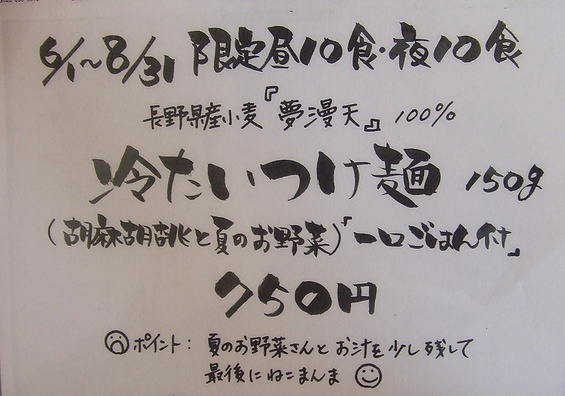 6/1〜8/31 限定昼10食・夜10食
長野県産小麦『夢漫天』100%
冷たいつけ麺 150g
(胡麻胡桃と夏のお野菜)『一口ごはん付』
750円
ポイント:夏のお野菜さんとお汁を少し残して
最後にねこまんま